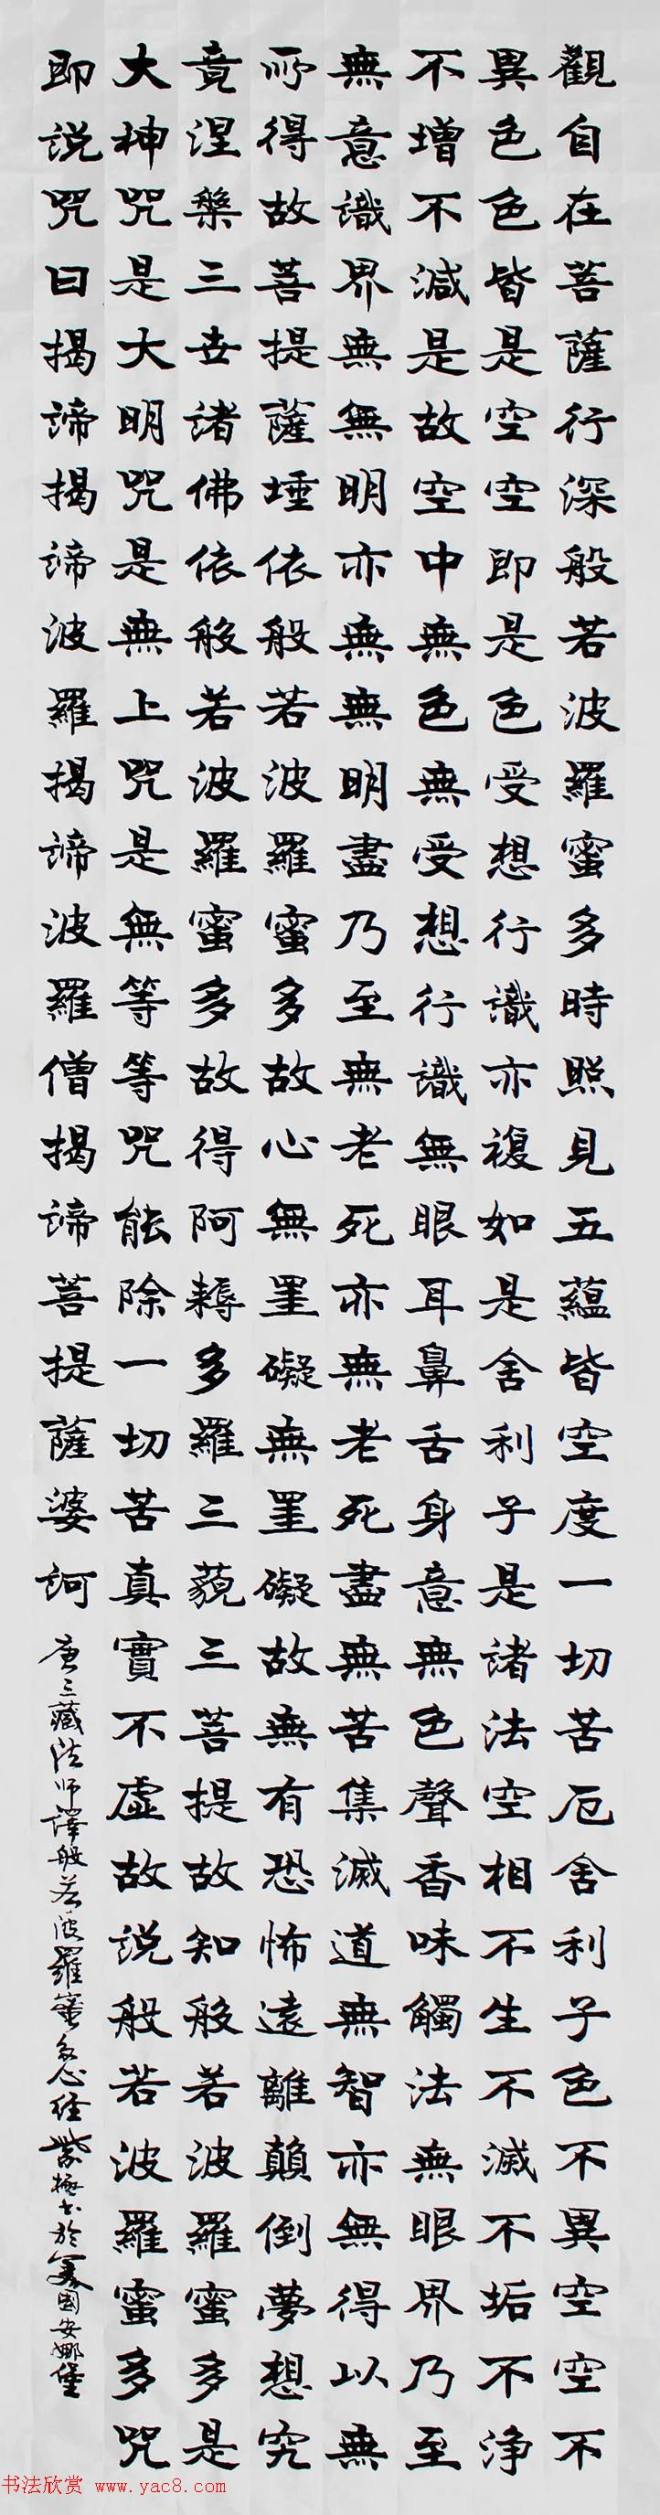 觀自在菩薩行深般若波羅蜜多時照見五蘊皆空度一切苦厄舍利子色不異空空不
異色色皆是空空即是色受想行識亦複如是舍利子是諸法空相不生不滅不垢不浄
不增不減是故空中無色無受想行識無眼耳鼻舌身意無色聲香味觸法無眼界乃至
無意識界無無明亦無無明盡乃至無老死亦無老死盡無苦集滅道無智亦無得以無
所得故菩提薩埵依般若波羅蜜多故心無罣礙無罣礙故無有恐怖遠離顛倒夢想究
竟涅槃三世諸佛依般若波羅蜜多故得阿耨多羅三藐三菩提故知般若波羅蜜多是
大神咒是大明咒是無上咒是無等等咒能除一切苦真實不虛故説般若波羅蜜多咒
即説咒曰揭諦揭諦波羅揭諦波羅僧揭諦菩提薩婆訶
唐三藏法师譯般若波羅蜜多心経紫極书於美國安娜堡
书法欣赏 www.yac8.com